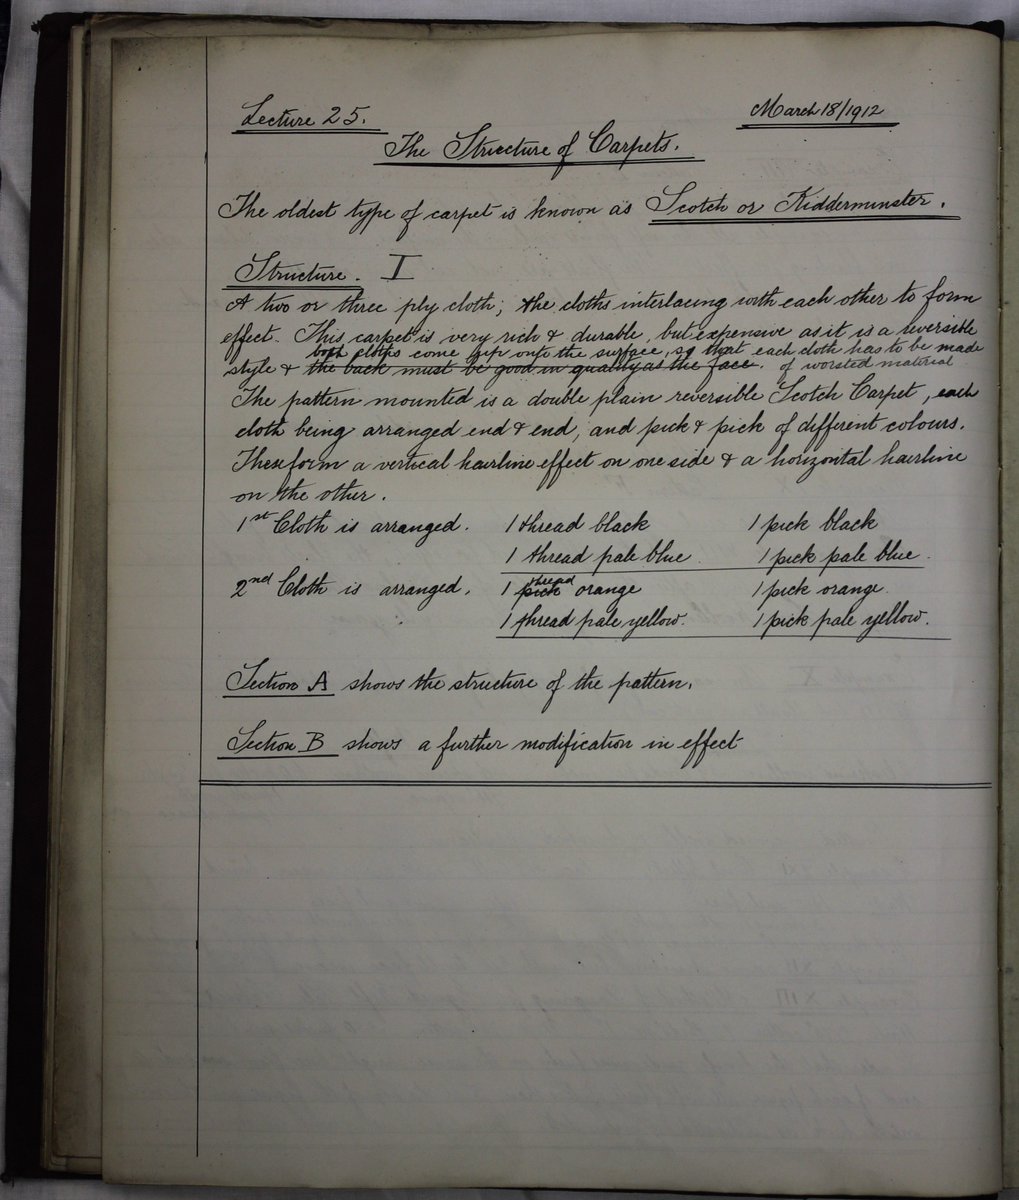 Lecture 25. March 18/1912
The Structure of Carpets.
The oldest type of carpet is known as Scotch or Kidderminster.
Structure. I
A two or three ply cloth; the cloths interlacing with each other to form
effect. This carpet is very rich & durable, but expensive as it is a reversible
both cloths come up onto the surface, so that each cloth has to be made
style & the back must be good in quality as the face. of worsted material
The pattern mounted is a double plain reversible Scotch Carpet, each
cloth being arranged end & end, and pick & pick of different colours.
These form a vertical hairline effect on one side & a horizontal hairline
on the other.
1st Cloth is arranged. 1 thread black 1 pick black
1 thread pale blue 1 pick pale blue.
thread
2nd Cloth is arranged. 1 pick orange 1 pick orange.
1 thread pale yellow. 1 pick pale yellow.
Section A shows the structure of the pattern.
Section B shows a further modification in effect